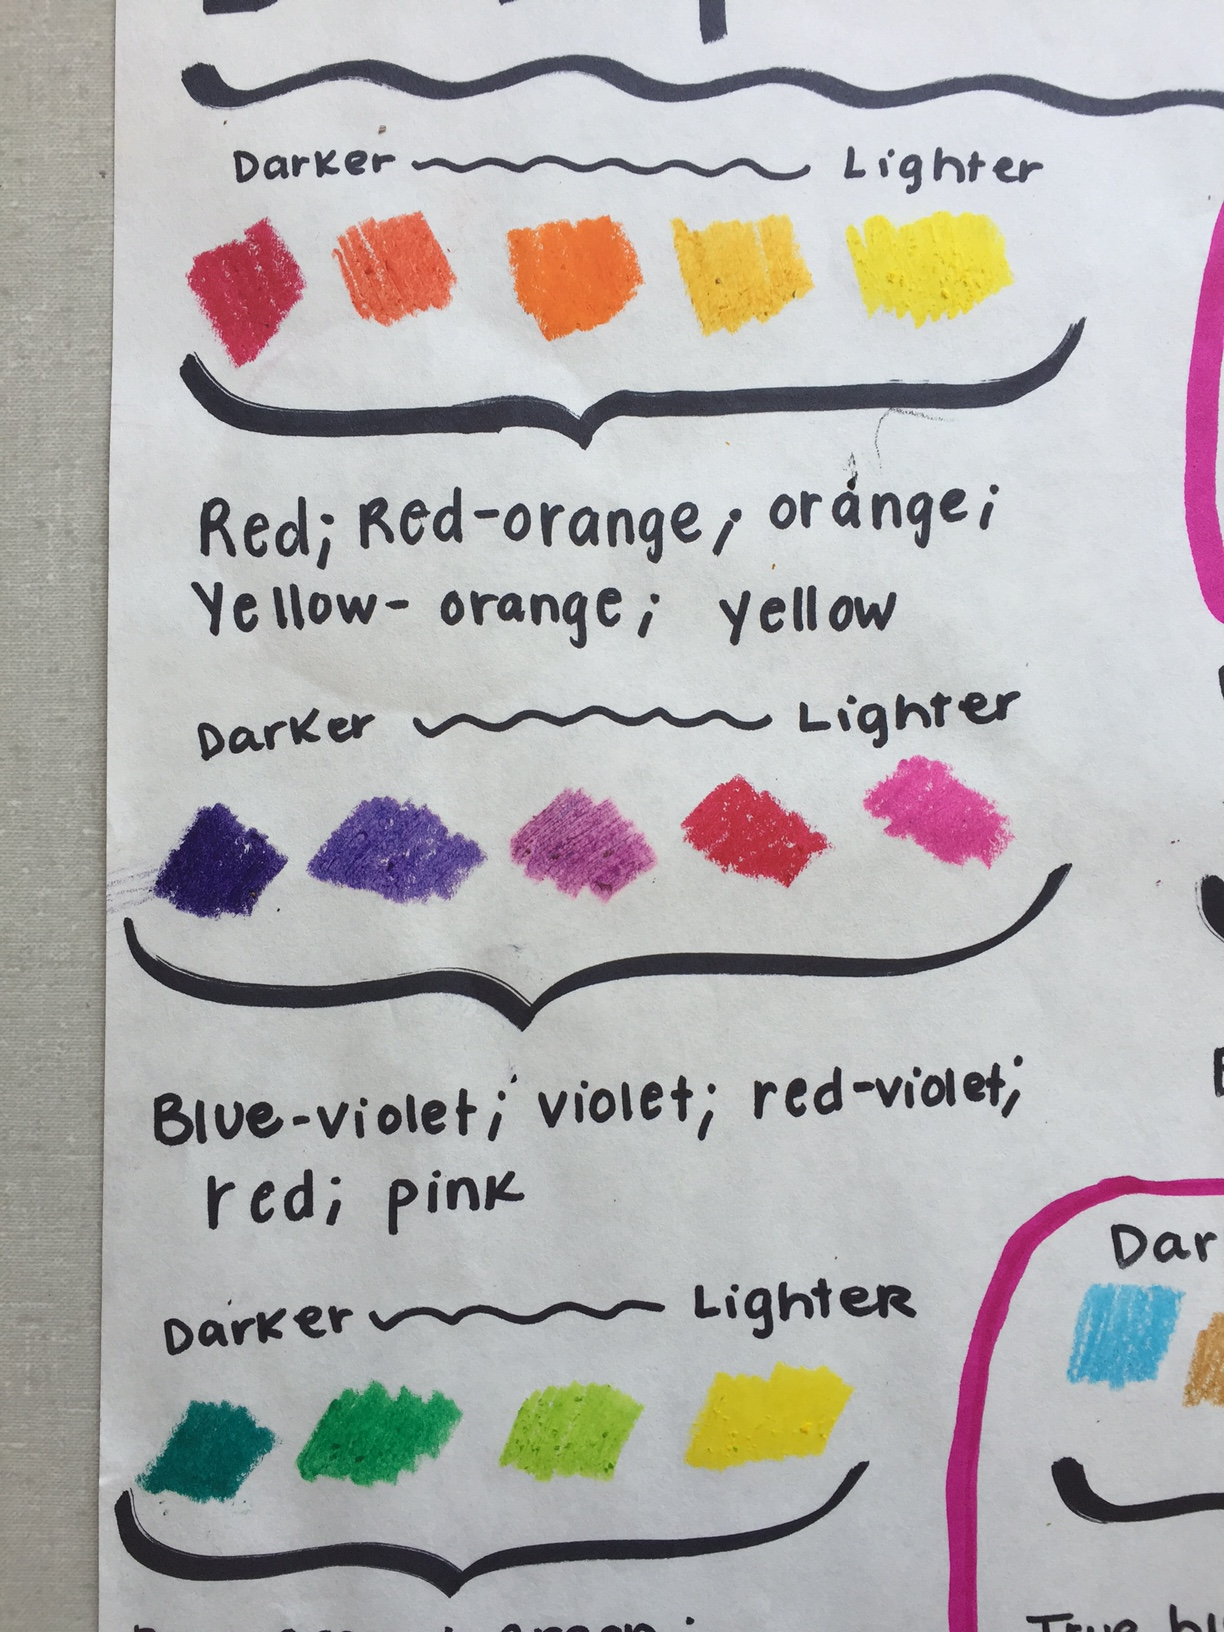 Darker Lighter
Red; Red-orange; orange;
Yellow-orange; yellow
Darker Lighter
Blue-violet; violet; red-violet;
red; pink
Darker Lighter
green;
Dar
True